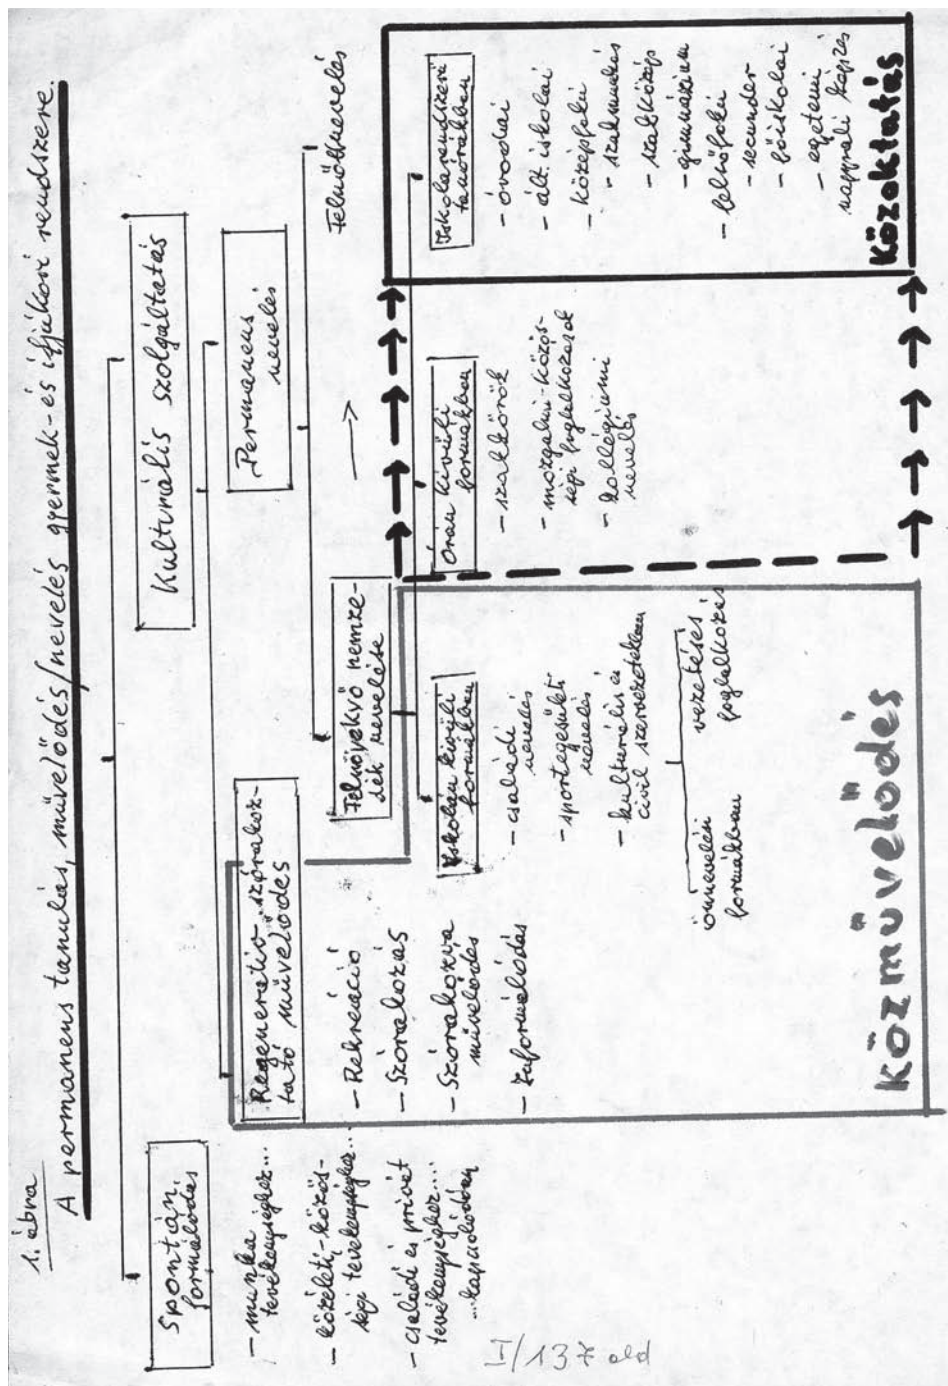 1. ábra
A permanens tanulás, művelődés/nevelés gyermek- és ifjúkori rendszere.
Spontán
formálódás
- munka
tevékenységhez...
- közéleti-közös-
ségi tevékenységhez...
- családi és privát
tevékenységhez...
...kapcsolódóan
Kulturális szolgáltatás
Regeneratív-szórakoz-
tató művelődés
- Rekreáció
- Szórakozás
- Szórakozva
művelődés
- Informálódás
Permanens
nevelés
Felnövekvő nemze-
dék nevelése
Felnőttnevelés
Iskolán kívüli
formákban
- családi
nevelés
- sportegyesületi
nevelés
- kulturális és
civil szervezetekben
önnevelési
formákban
vezetéses
foglalkozás
Órán kívüli
formákban
- szakkörök
- mozgalmi-közös-
ségi foglalkozások
- kollégiumi
nevelés
Iskolarendszerű
tanórákban
- óvodai
- ált. iskolai
- középfokú
- szakmunkás
- szakközép
- gimnázium
- felsőfokú
- secunder
- főiskolai
- egyetemi
nappali képzés
Közművelődés
Közoktatás
I/137 old